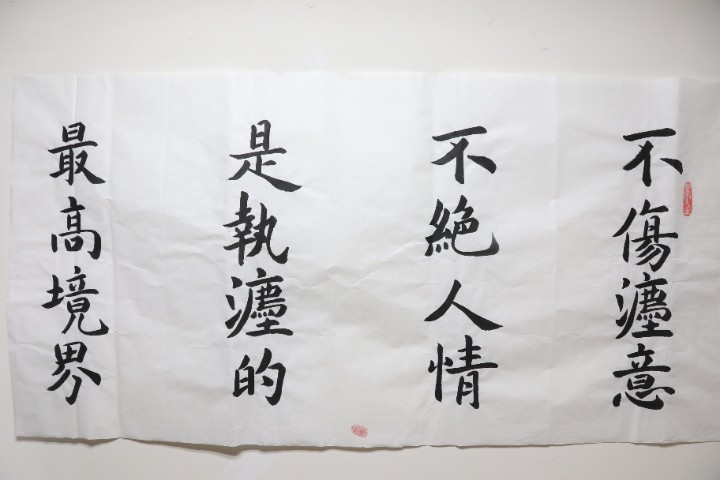 不傷灋意
不絕人情
是執灋的
最高境界